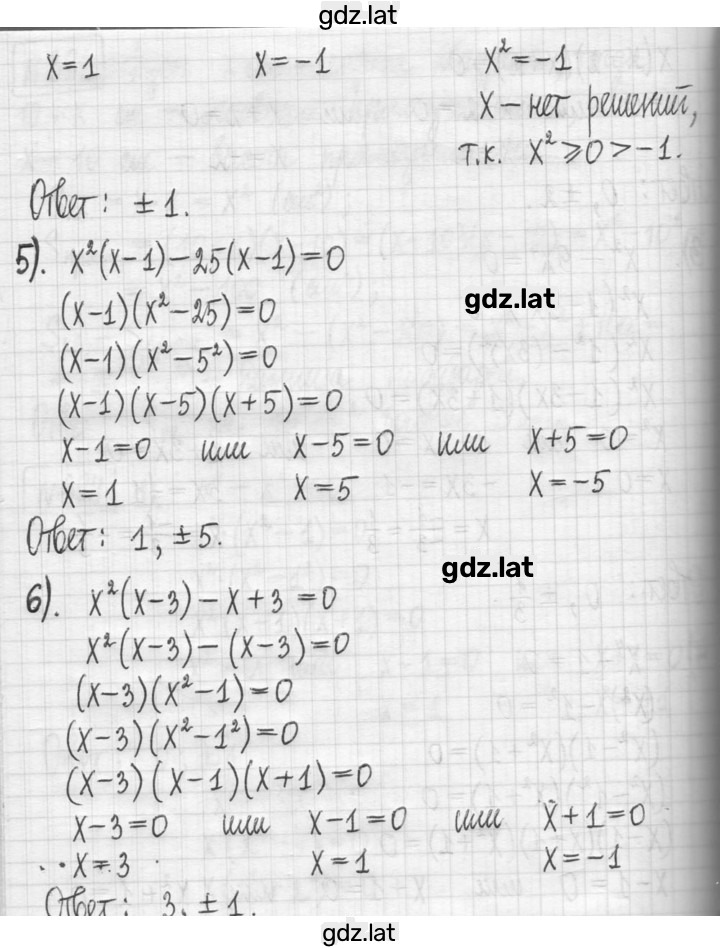 gdz.lat
x=1 x=-1 x²=-1
x-нет решений,
т.к. x²⩾0>-1.
Ответ: ±1.
5). x²(x-1)-25(x-1)=0
(x-1)(x²-25)=0
gdz.lat
(x-1)(x²-5²)=0
(x-1)(x-5)(x+5)=0
x-1=0 или x-5=0 или x+5=0
x=1 x=5 x=-5
Ответ: 1, ±5.
gdz.lat
6). x²(x-3)-x+3=0
x²(x-3)-(x-3)=0
(x-3)(x²-1)=0
(x-3)(x²-1²)=0
(x-3)(x-1)(x+1)=0
x-3=0 или x-1=0 или x+1=0
x=3 x=1 x=-1
Ответ: 3, ±1.
gdz.lat